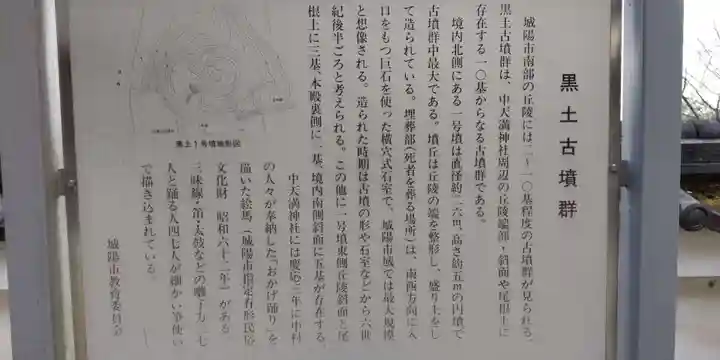 黒土古墳群
城陽市南部の丘陵には二〜一〇基程度の古墳群が見られる。
黒土古墳群は、中天満神社周辺の丘陵端部・斜面や尾根上に
存在する一〇基からなる古墳群である。
境内北側にある一号墳は直径約二六m、高さ約五mの円墳で
古墳群中最大である。墳丘は丘陵の端を整形し、盛り土をし
て造られている。埋葬部(死者を葬る場所)は、南西方向に入
口をもつ巨石を使った横穴式石室で、城陽市域では最大規模
と想像される。造られた時期は古墳の形や石室などから六世
紀後半ごろと考えられる。この他に一号墳東側丘陵斜面と尾
根上に三基、本殿裏側に一基、境内南側斜面に五基が存在する。
中天満神社には慶応三年に中村
の人々が奉納した「おかげ踊り」を
描いた絵馬(城陽市指定有形民俗
文化財 昭和六十二年)がある
三味線・笛・太鼓などの囃子方、七
人と踊る人四七人が細かい筆使い
で描き込まれている。
城陽市教育委員会
黒土1号墳地形図